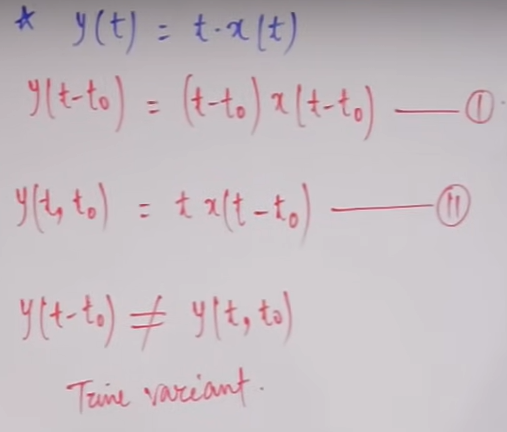 * y(t) = t·x(t)
y(t-t₀) = (t-t₀) x(t-t₀) —— Ⓘ
y(t, t₀) = t x(t-t₀) —— ⓘⓘ
y(t-t₀) ≠ y(t, t₀)
Time variant.